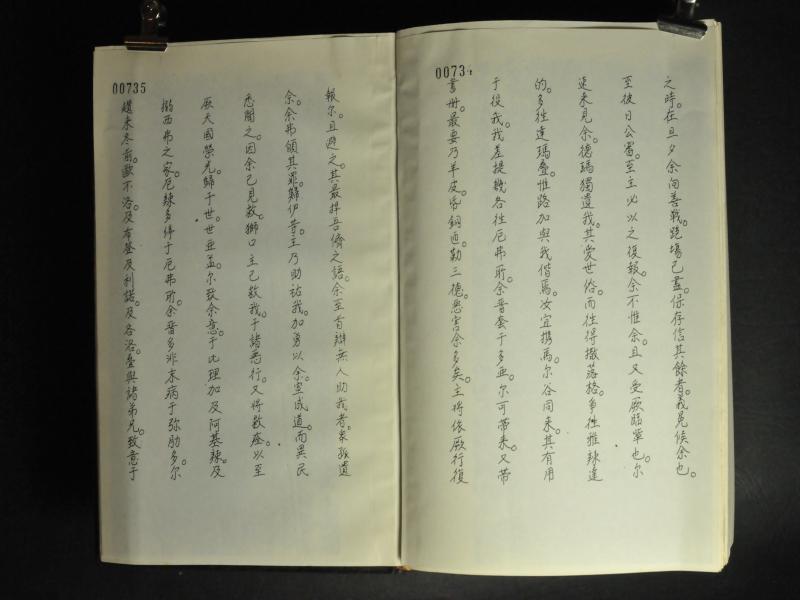 0073
之時。在旦夕余向善戰。跑場已盡。保存信其餘者。義冕候余也。
至彼日公審。至主必以之復報。余不惟余。且又受厥臨輩也。尔
速來見余。德瑪獨遺我。其愛世俗。而往得撒落。格。爭徃雅辣達
的。多徃達瑪叠。惟路加與我偕焉。汝宜携馬尔谷同來。其有用
于役我。我差提幾各徃厄弗所。余昔套于多亜。尔可帶來。又帶
書冊。最要乃羊皮。昏銅匠勒三德。悉害余多矣。主將依厥行復
00735
報尔。且避之。其最捍吾儕之語。余至首辯無人助我者。衆孤遺
余。余弗願其罪歸伊昔。主乃助祐我。加勇以余室成道。而異民
悉聞之。因余已見救。獅口主已救我。于諸悪行。又將救座。以至
厥天國榮光歸于世世。亜孟。尔致余意于比理加及阿基辣。及
搊西弗之家。厄辣多停于厄弗所。余昔多非末病于弥肋多。尔
趕未冬前。歐不洛。及布基及利諾。及各洛叠與諸弟兄。致意于